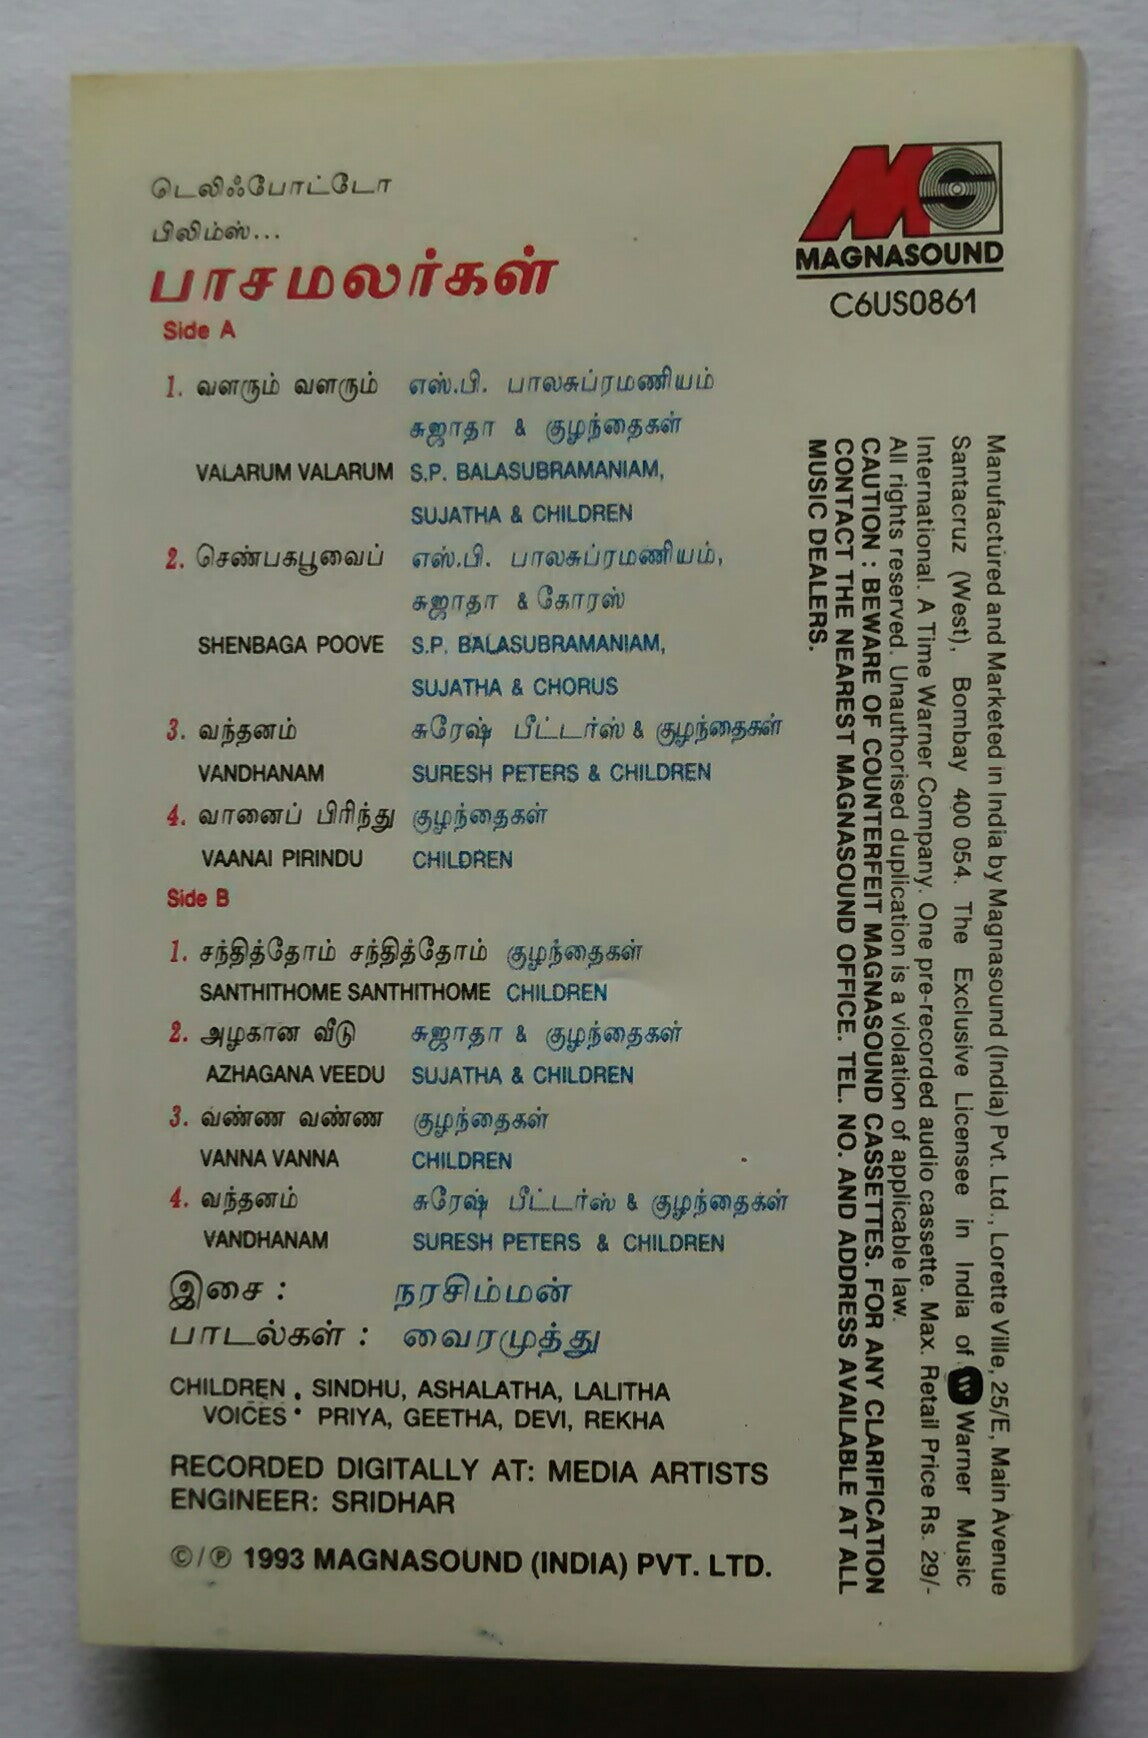 டெலிஃபோட்டோ
பிலிம்ஸ்...
பாசமலர்கள்
MAGNASOUND
C6US0861
Side A
1. வளரும் வளரும் எஸ்.பி. பாலசுப்ரமணியம்
சுஜாதா & குழந்தைகள்
VALARUM VALARUM S.P. BALASUBRAMANIAM,
SUJATHA & CHILDREN
2. செண்பகபூவைப் எஸ்.பி. பாலசுப்ரமணியம்,
சுஜாதா & கோரஸ்
SHENBAGA POOVE S.P. BALASUBRAMANIAM,
SUJATHA & CHORUS
3. வந்தனம் சுரேஷ் பீட்டர்ஸ் & குழந்தைகள்
VANDHANAM SURESH PETERS & CHILDREN
4. வானைப் பிரிந்து குழந்தைகள்
VAANAI PIRINDU CHILDREN
Side B
1. சந்தித்தோம் சந்தித்தோம் குழந்தைகள்
SANTHITHOME SANTHITHOME CHILDREN
2. அழகான வீடு சுஜாதா & குழந்தைகள்
AZHAGANA VEEDU SUJATHA & CHILDREN
3. வண்ண வண்ண குழந்தைகள்
VANNA VANNA CHILDREN
4. வந்தனம் சுரேஷ் பீட்டர்ஸ் & குழந்தைகள்
VANDHANAM SURESH PETERS & CHILDREN
இசை : நரசிம்மன்
பாடல்கள் : வைரமுத்து
CHILDREN : SINDHU, ASHALATHA, LALITHA
VOICES PRIYA, GEETHA, DEVI, REKHA
RECORDED DIGITALLY AT: MEDIA ARTISTS
ENGINEER: SRIDHAR
©/℗ 1993 MAGNASOUND (INDIA) PVT. LTD.
Manufactured and Marketed in India by Magnasound (India) Pvt. Ltd., Lorette Ville, 25/E, Main Avenue
Santacruz (West), Bombay 400 054. The Exclusive Licensee in India of Warner Music
International. A Time Warner Company. One pre-recorded audio cassette. Max. Retail Price Rs. 29/-
All rights reserved. Unauthorised duplication is a violation of applicable law.
CAUTION : BEWARE OF COUNTERFEIT MAGNASOUND CASSETTES. FOR ANY CLARIFICATION
CONTACT THE NEAREST MAGNASOUND OFFICE. TEL. NO. AND ADDRESS AVAILABLE AT ALL
MUSIC DEALERS.